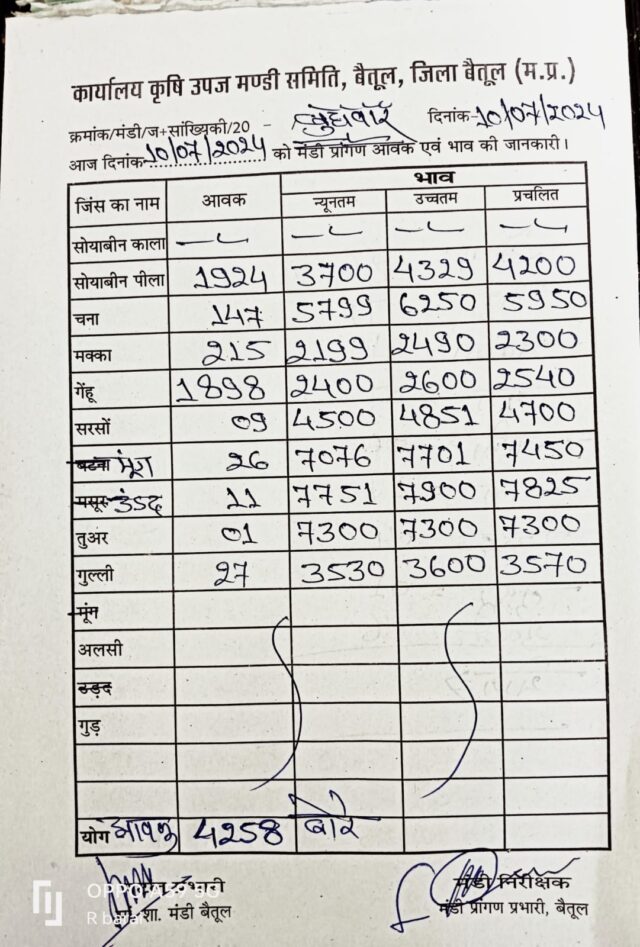 कार्यालय कृषि उपज मण्डी समिति, बैतूल, जिला बैतूल (म.प्र.)
क्रमांक/मंडी/ज+सांख्यिकी/20 - बुधवार दिनांक 10/07/2024
आज दिनांक 10/07/2024 को मंडी प्रांगण आवक एवं भाव की जानकारी।
जिंस का नाम आवक भाव
न्यूनतम उच्चतम प्रचलित
सोयाबीन काला
सोयाबीन पीला 1924 3700 4329 4200
चना 147 5799 6250 5950
मक्का 215 2199 2490 2300
गेंहू 1898 2400 2600 2540
सरसों 09 4500 4851 4700
बटना मूंग 26 7076 7701 7450
मसूर उडद 11 7751 7900 7825
तुअर 01 7300 7300 7300
गुल्ली 27 3530 3600 3570
मूंग
अलसी
उड़द
गुड़
योग आवक 4258 बोरे
प्रभारी मंडी निरीक्षक
शा. मंडी बैतूल मंडी प्रांगण प्रभारी, बैतूल